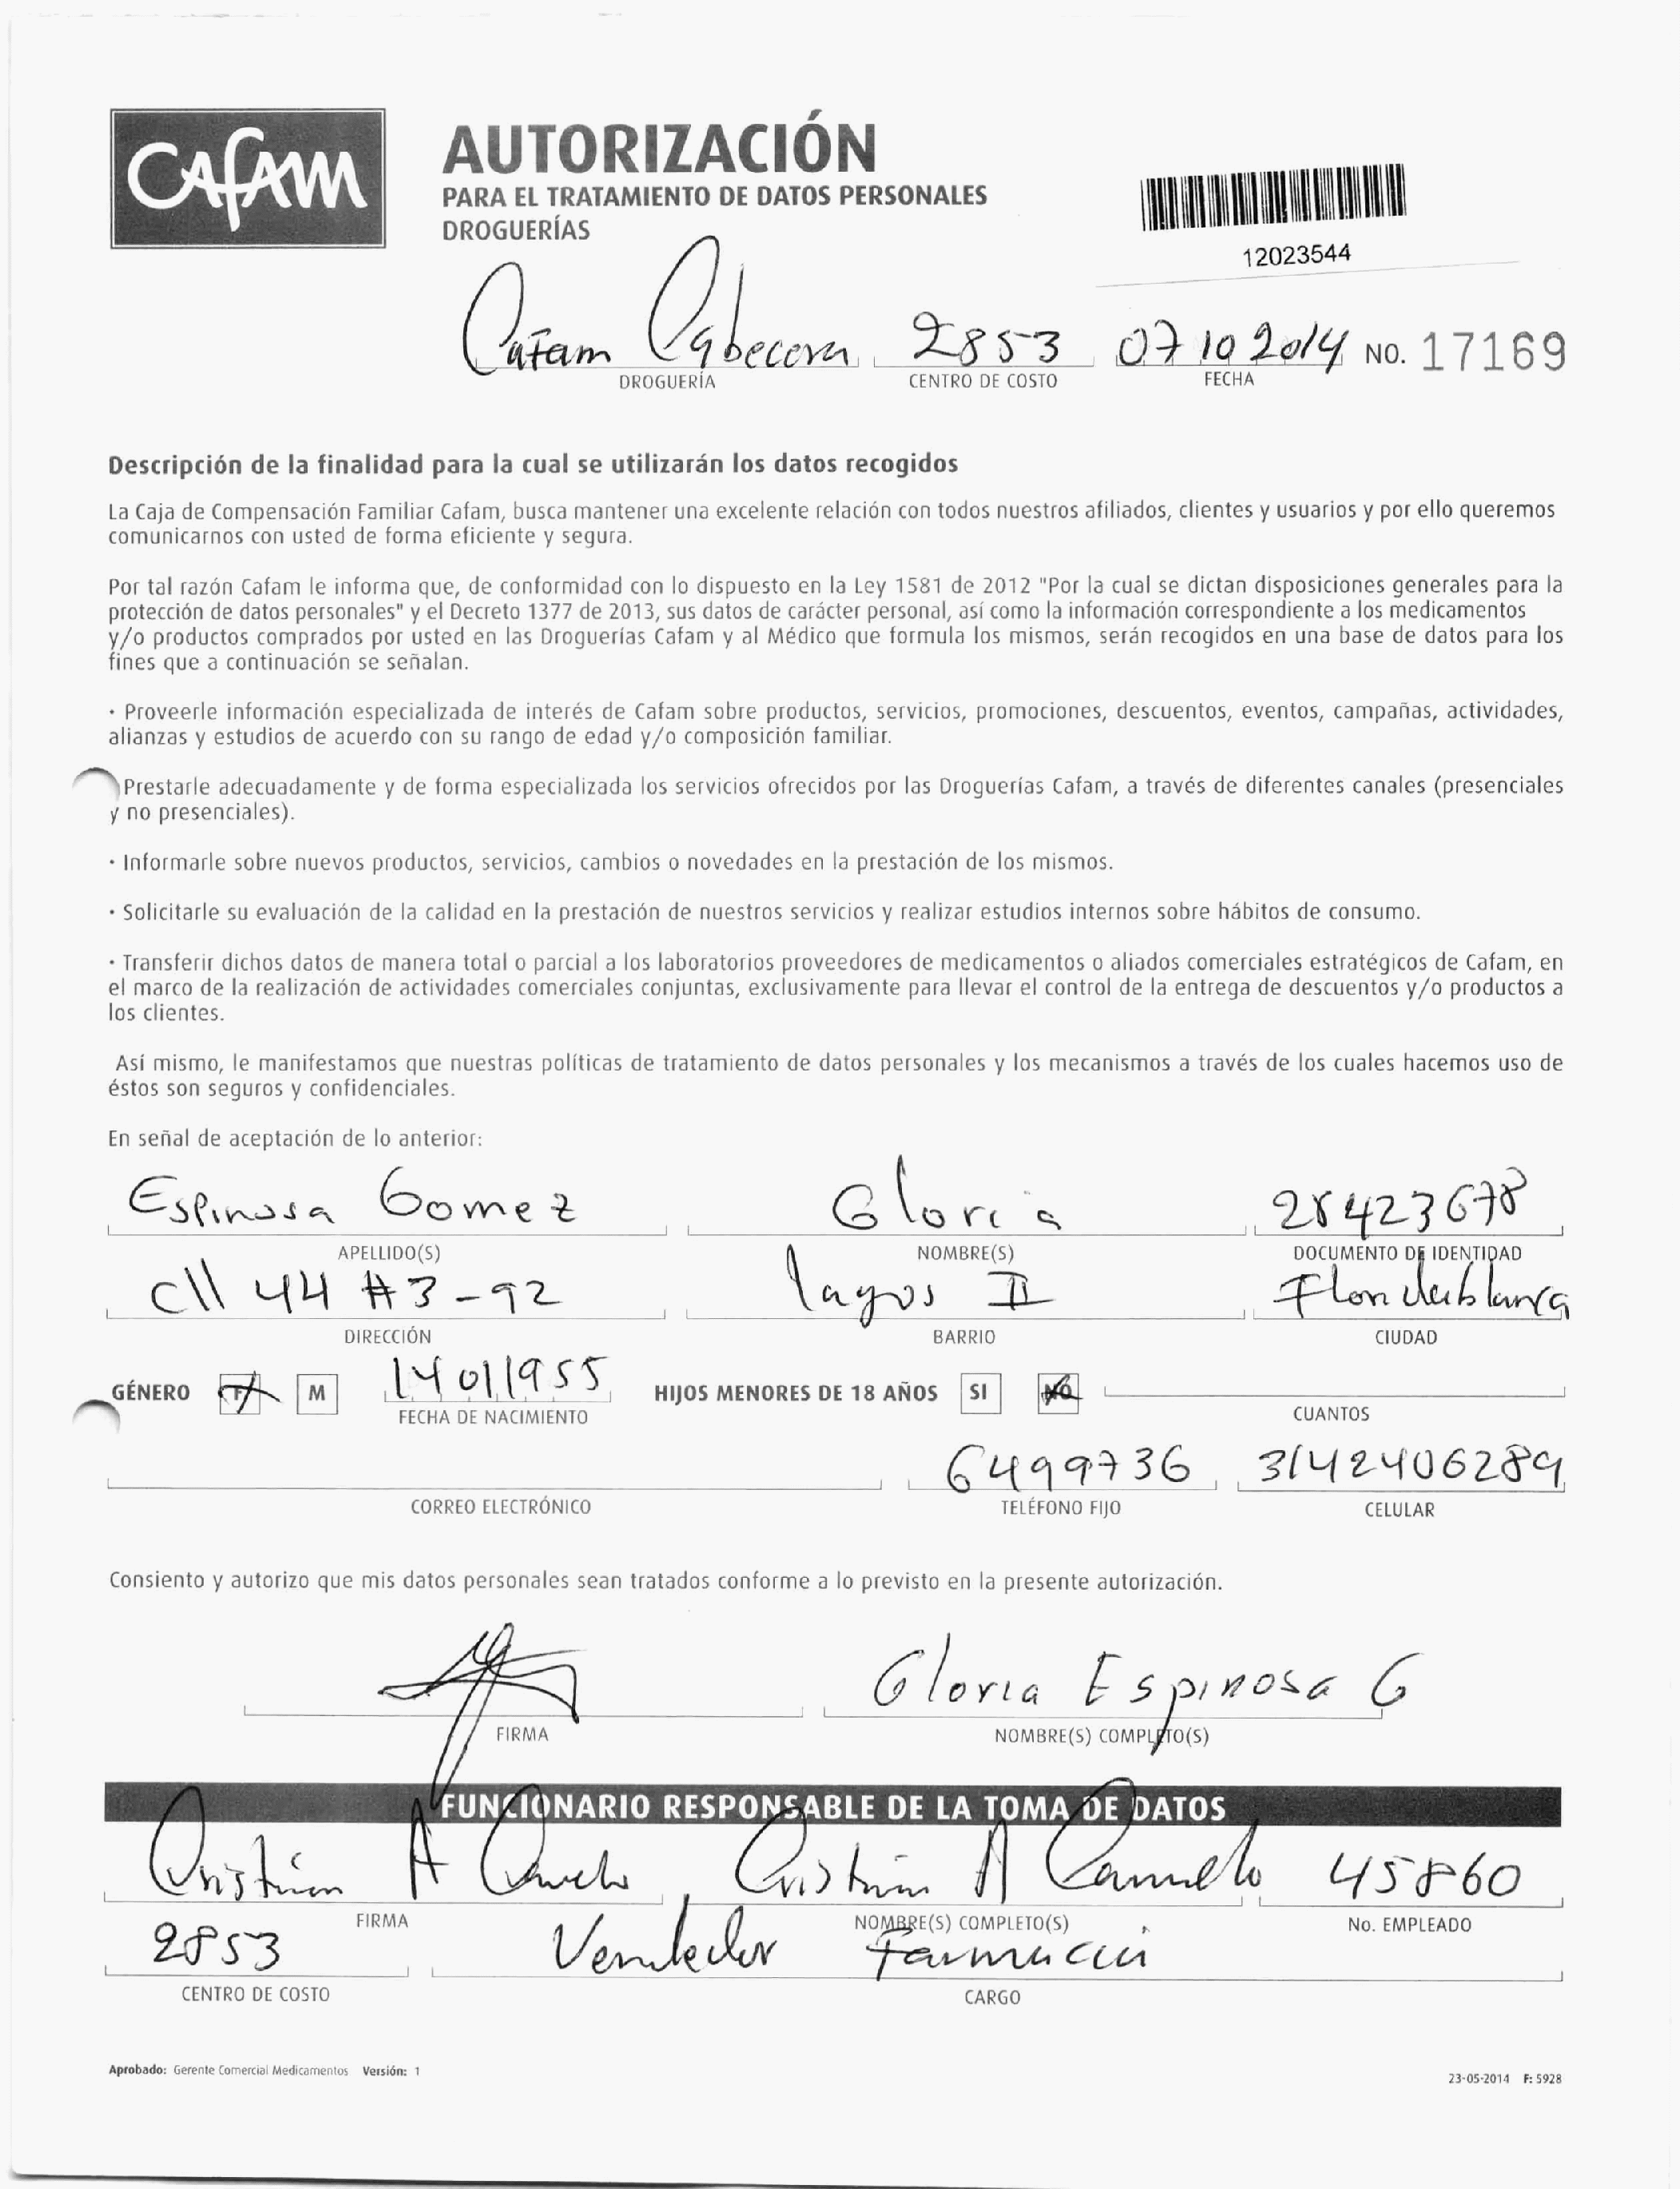 CAFAM
AUTORIZACIÓN
PARA EL TRATAMIENTO DE DATOS PERSONALES
DROGUERÍAS
12023544
Cafam Cabecera 2853 07 10 2014 NO. 17169
DROGUERÍA CENTRO DE COSTO FECHA
Descripción de la finalidad para la cual se utilizarán los datos recogidos
La Caja de Compensación Familiar Cafam, busca mantener una excelente relación con todos nuestros afiliados, clientes y usuarios y por ello queremos
comunicarnos con usted de forma eficiente y segura.
Por tal razón Cafam le informa que, de conformidad con lo dispuesto en la Ley 1581 de 2012 "Por la cual se dictan disposiciones generales para la
protección de datos personales" y el Decreto 1377 de 2013, sus datos de carácter personal, así como la información correspondiente a los medicamentos
y/o productos comprados por usted en las Droguerías Cafam y al Médico que formula los mismos, serán recogidos en una base de datos para los
fines que a continuación se señalan.
· Proveerle información especializada de interés de Cafam sobre productos, servicios, promociones, descuentos, eventos, campañas, actividades,
alianzas y estudios de acuerdo con su rango de edad y/o composición familiar.
Prestarle adecuadamente y de forma especializada los servicios ofrecidos por las Droguerías Cafam, a través de diferentes canales (presenciales
y no presenciales).
· Informarle sobre nuevos productos, servicios, cambios o novedades en la prestación de los mismos.
· Solicitarle su evaluación de la calidad en la prestación de nuestros servicios y realizar estudios internos sobre hábitos de consumo.
· Transferir dichos datos de manera total o parcial a los laboratorios proveedores de medicamentos o aliados comerciales estratégicos de Cafam, en
el marco de la realización de actividades comerciales conjuntas, exclusivamente para llevar el control de la entrega de descuentos y/o productos a
los clientes.
Así mismo, le manifestamos que nuestras políticas de tratamiento de datos personales y los mecanismos a través de los cuales hacemos uso de
éstos son seguros y confidenciales.
En señal de aceptación de lo anterior:
Espinosa Gomez Gloria 28423678
APELLIDO(S) NOMBRE(S) DOCUMENTO DE IDENTIDAD
Cll 44 #3-92 lagos II Floridablanca
DIRECCIÓN BARRIO CIUDAD
GÉNERO F M 14011955 HIJOS MENORES DE 18 AÑOS SI NO
FECHA DE NACIMIENTO CUANTOS
6499736 3142406289
CORREO ELECTRÓNICO TELÉFONO FIJO CELULAR
Consiento y autorizo que mis datos personales sean tratados conforme a lo previsto en la presente autorización.
Gloria Espinosa G
FIRMA NOMBRE(S) COMPLETO(S)
FUNCIONARIO RESPONSABLE DE LA TOMA DE DATOS
Cristian A Cristian A 45860
FIRMA NOMBRE(S) COMPLETO(S) No. EMPLEADO
2853 Vendedor Farmacia
CENTRO DE COSTO CARGO
Aprobado: Gerente Comercial Medicamentos Versión: 1
23-05-2014 F: 5928